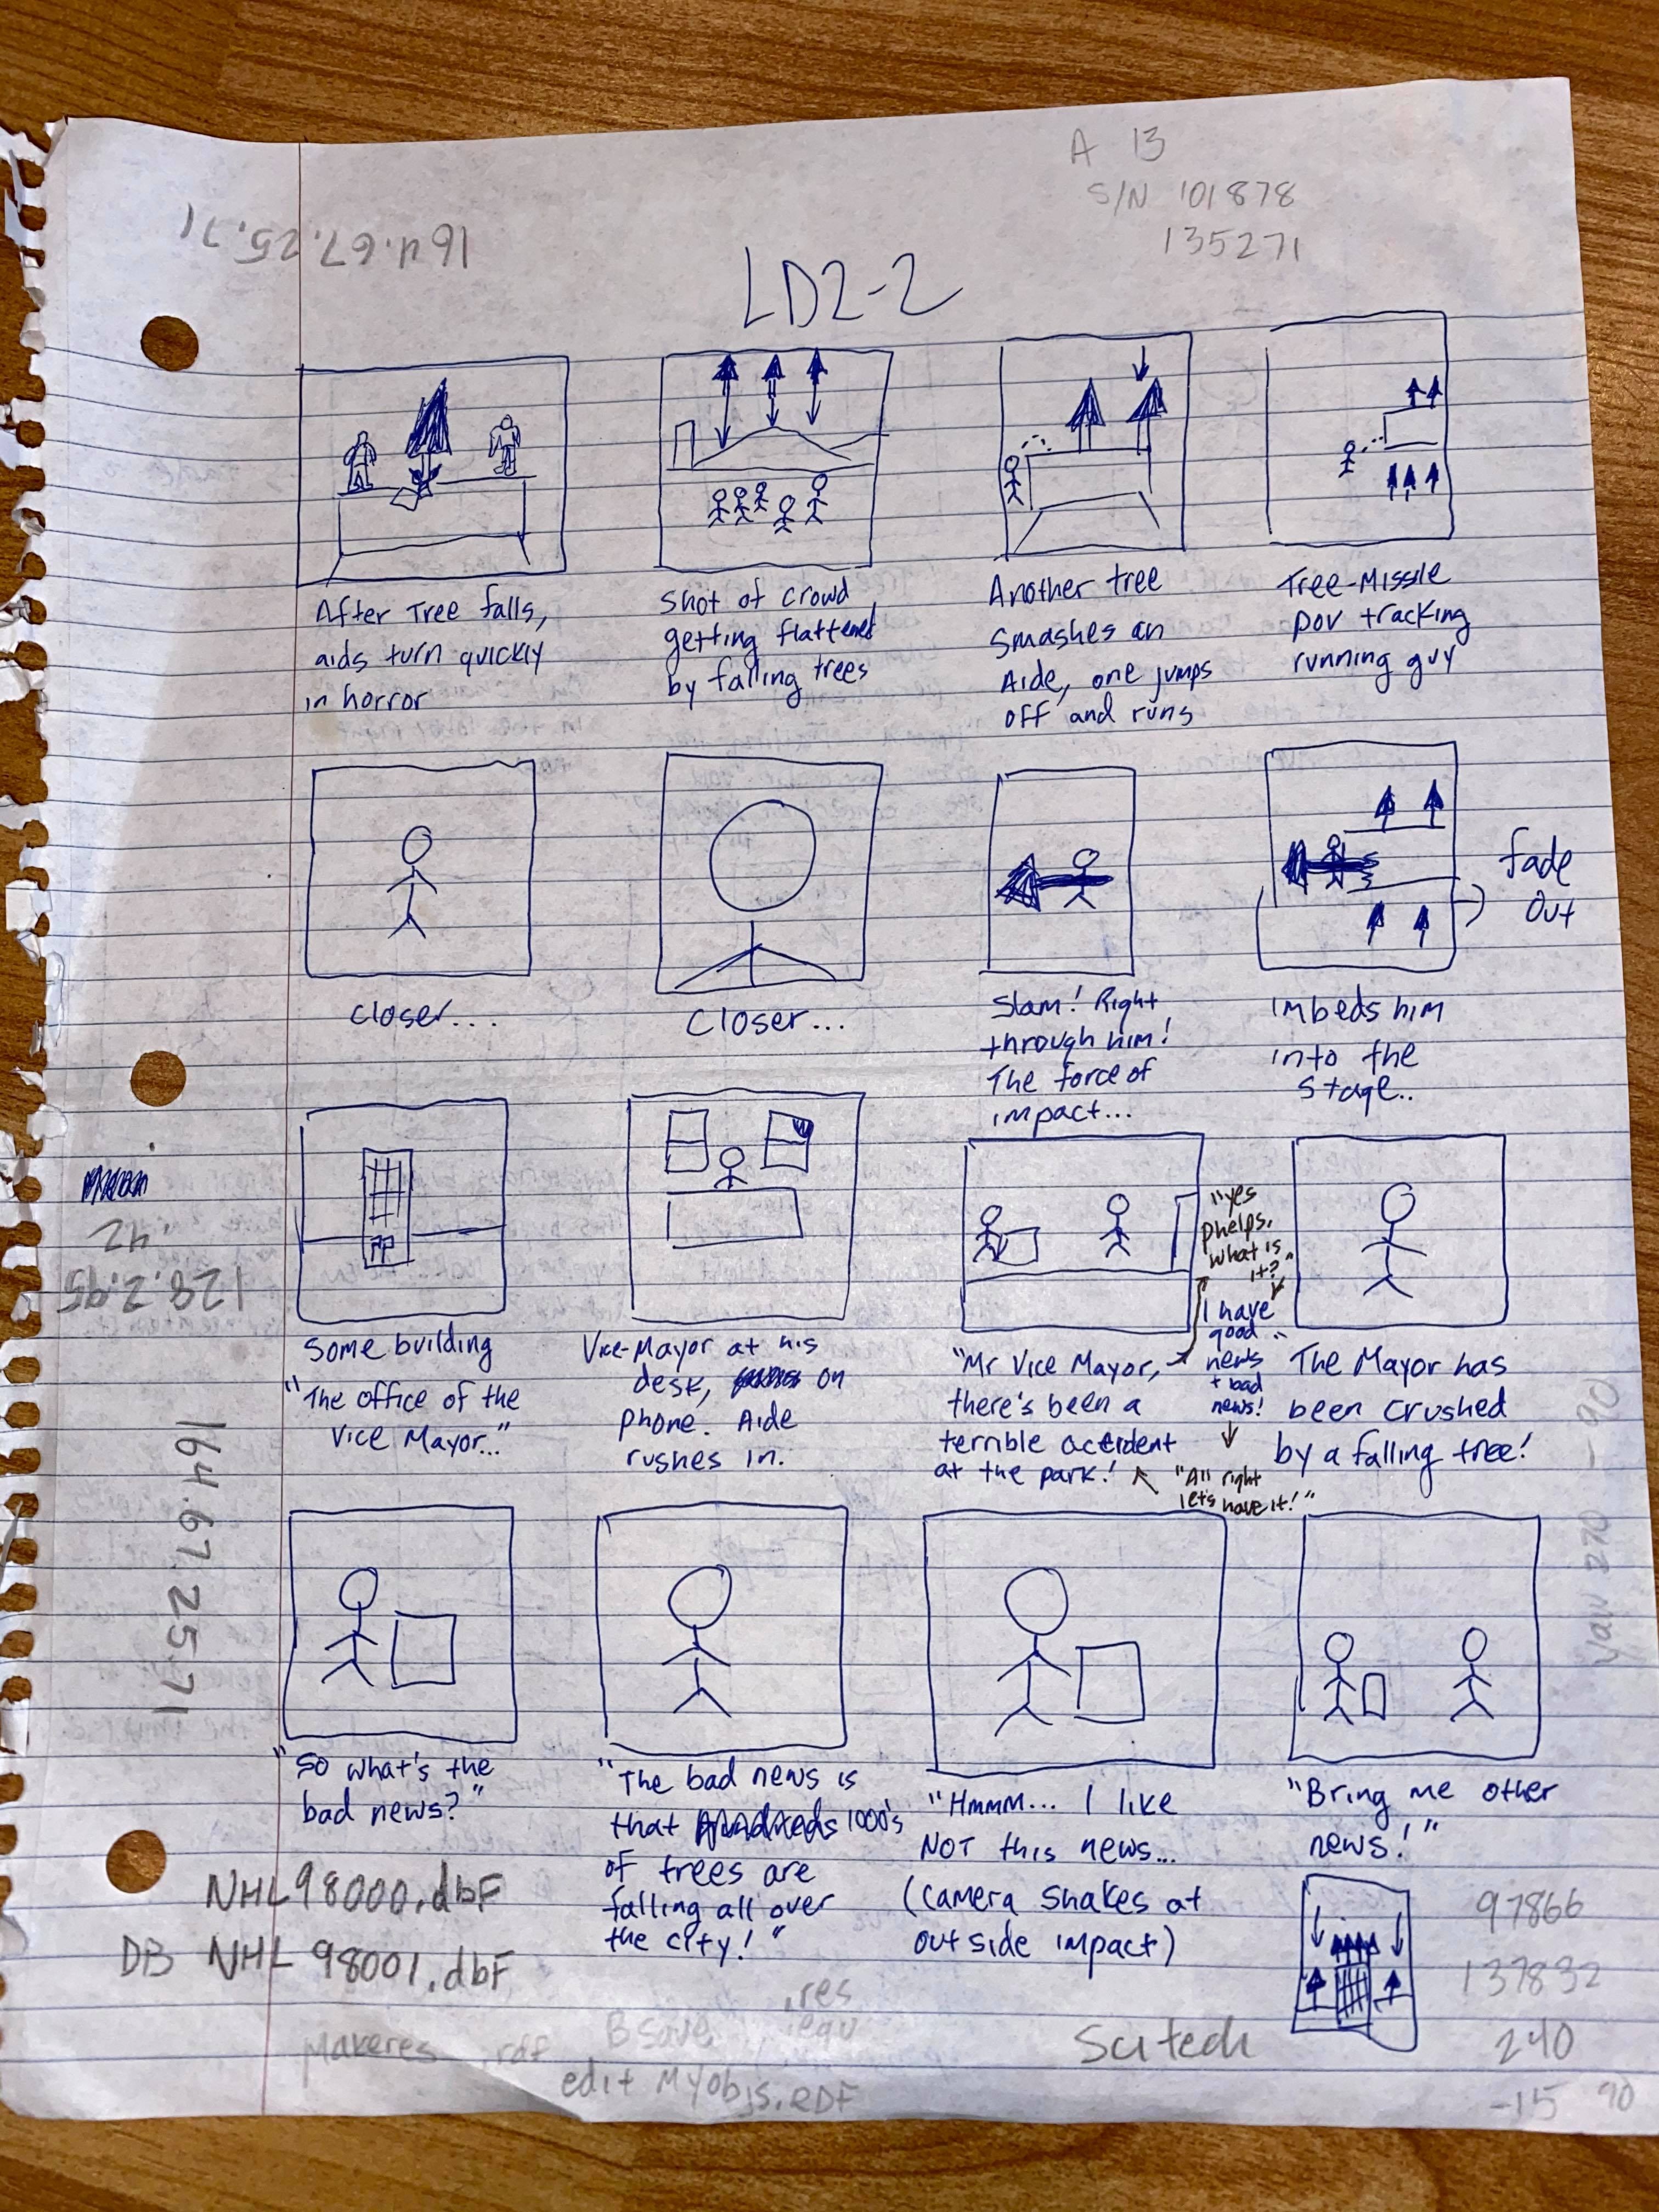 A 13
S/N 101878
135271
164.67.25.71
LD2-2
After Tree falls,
aids turn quickly
in horror
Shot of crowd
getting flattened
by falling trees
Another tree
smashes an
Aide, one jumps
off and runs
Tree-Missile
POV tracking
running guy
closer...
closer...
Slam! Right
through him!
The force of
impact...
imbeds him
into the
stage..
fade
out
Some building
"The office of the
Vice Mayor..."
Vice-Mayor at his
desk, on
phone. Aide
rushes in.
"Mr Vice Mayor,
there's been a
terrible accident
at the park!
"Yes
Phelps,
what is
it?"
I have
good
news
+ bad
news!
"All right
let's have it!"
The Mayor has
been crushed
by a falling tree!
.42
128.2.95
164.67.25.71
Yaw 270 - 90
"So what's the
bad news?"
"The bad news is
that hundreds 1000's
of trees are
falling all over
the city!"
"Hmmm... I like
NOT this news...
(camera shakes at
outside impact)
"Bring me other
news!"
NHL98000.dbf
DB NHL 98001.dbf
Makeres .rdf
BSave
.res
.equ
edit Myobjs.RDF
Scitech
97866
137832
240
-15 90